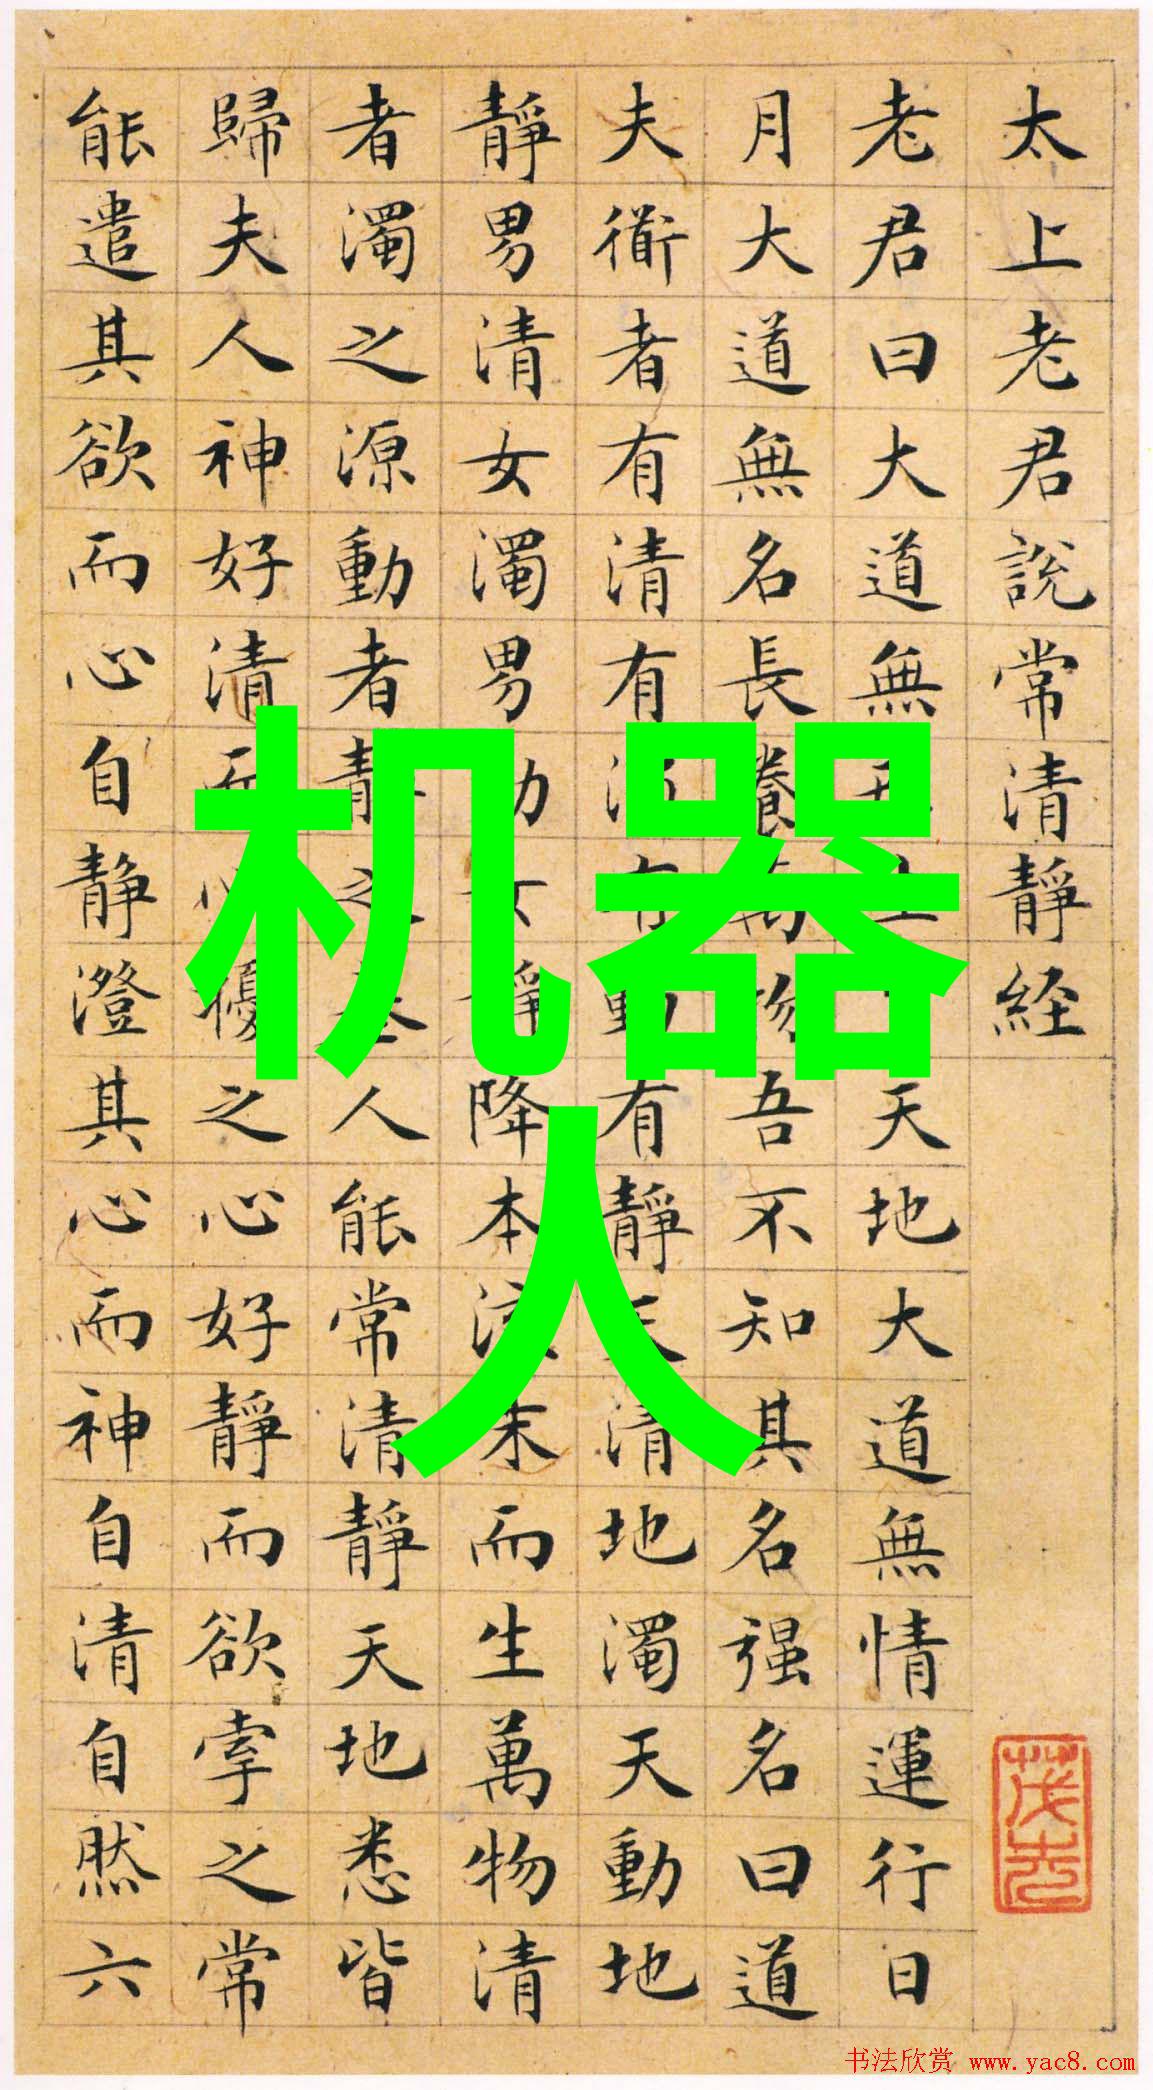 太上老君說常清靜経
老君曰大道無天地大道無情運行日
月大道無名長養萬物吾不知其名强名曰道
夫衜者有清有濁有動有靜天清地濁天動地
靜男清女濁男動女靜降本流末而生萬物清
者濁之源動者靜之基人能常清靜天地悉皆
歸夫人神好清而心擾之心好靜而欲牽之常
能遣其欲而心自靜澄其心而神自清自然六
机器
人
书法欣赏 www.yac8.com